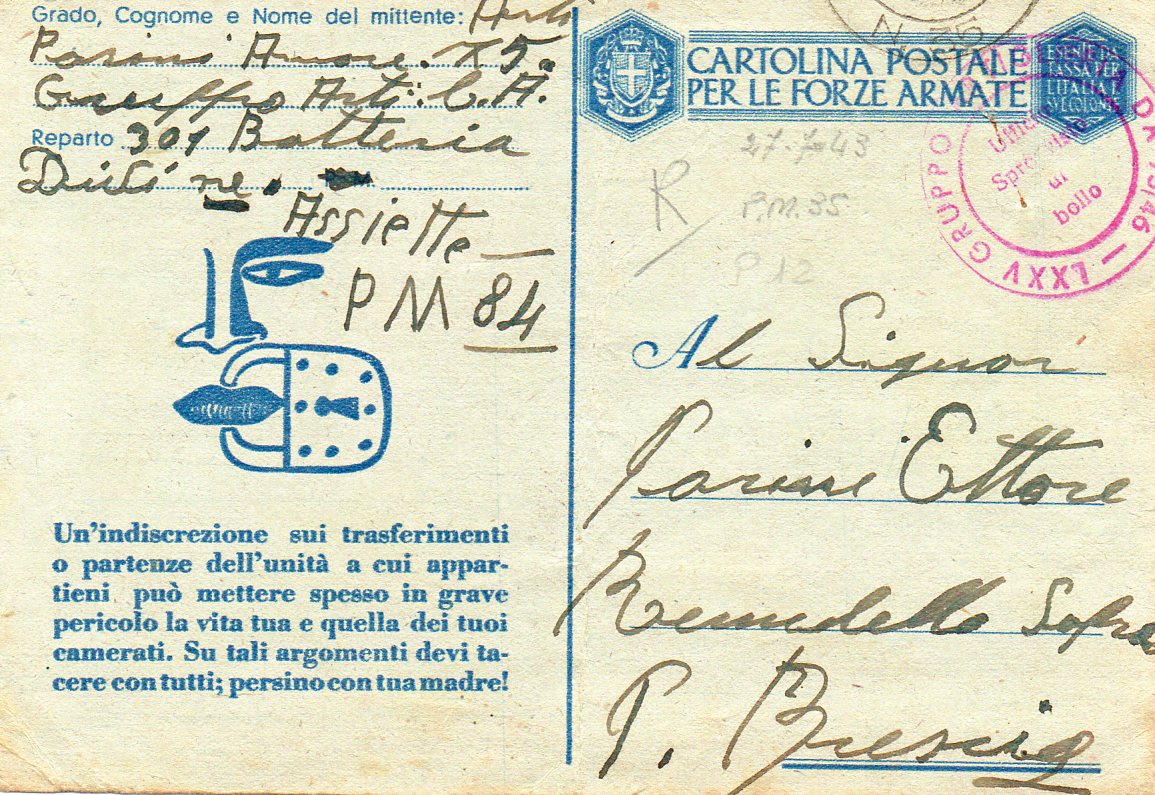 Grado, Cognome e Nome del mittente: Art
Parini Amore. X 5°
Arti: C.A.
Reparto 301 Batteria
Divi ne.
Assiette
PM 84
Un'indiscrezione sui trasferimenti
o partenze dell'unità a cui appar-
tieni può mettere spesso in grave
pericolo la vita tua e quella dei tuoi
camerati. Su tali argomenti devi ta-
cere con tutti; persino con tua madre!
N. 35
CARTOLINA POSTALE
PER LE FORZE ARMATE
LXXV GRUPPO DA 75/46
di
bollo
27-7-43
R
P.M. 35
P 12
Al Signor
Parini Ettore
Remedello Sopra
P. Brescia